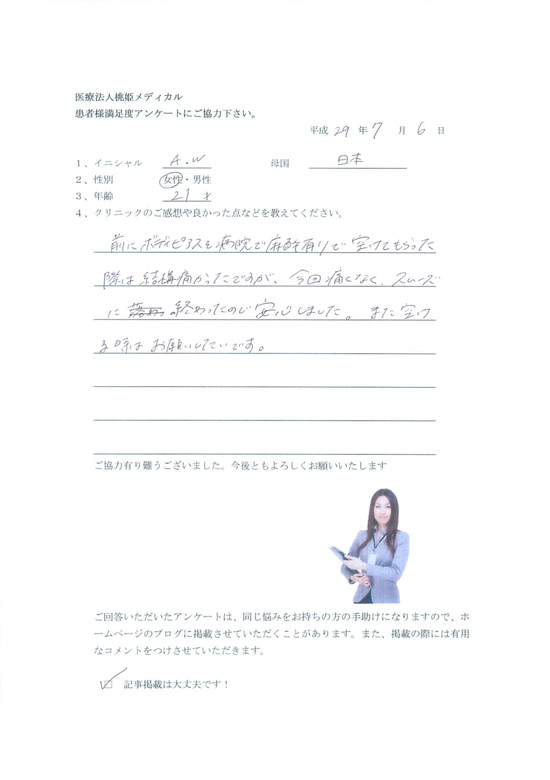 医療法人桃姫メディカル
患者様満足度アンケートにご協力下さい。
平成 29 年 7 月 6 日
1、イニシャル A.W 母国 日本
2、性別 女性・男性
3、年齢 21 才
4、クリニックのご感想や良かった点などを教えてください。
前にボディピアスも病院で麻酔有りで空けてもらった
際は結構痛かったですが、今回痛くなく、スムーズ
に 終わったので安心しました。また空け
る時はお願いしたいです。
ご協力有り難うございました。今後ともよろしくお願いいたします
ご回答いただいたアンケートは、同じ悩みをお持ちの方の手助けになりますので、ホ
ームページのブログに掲載させていただくことがあります。また、掲載の際には有用
なコメントをつけさせていただきます。
☑ 記事掲載は大丈夫です！